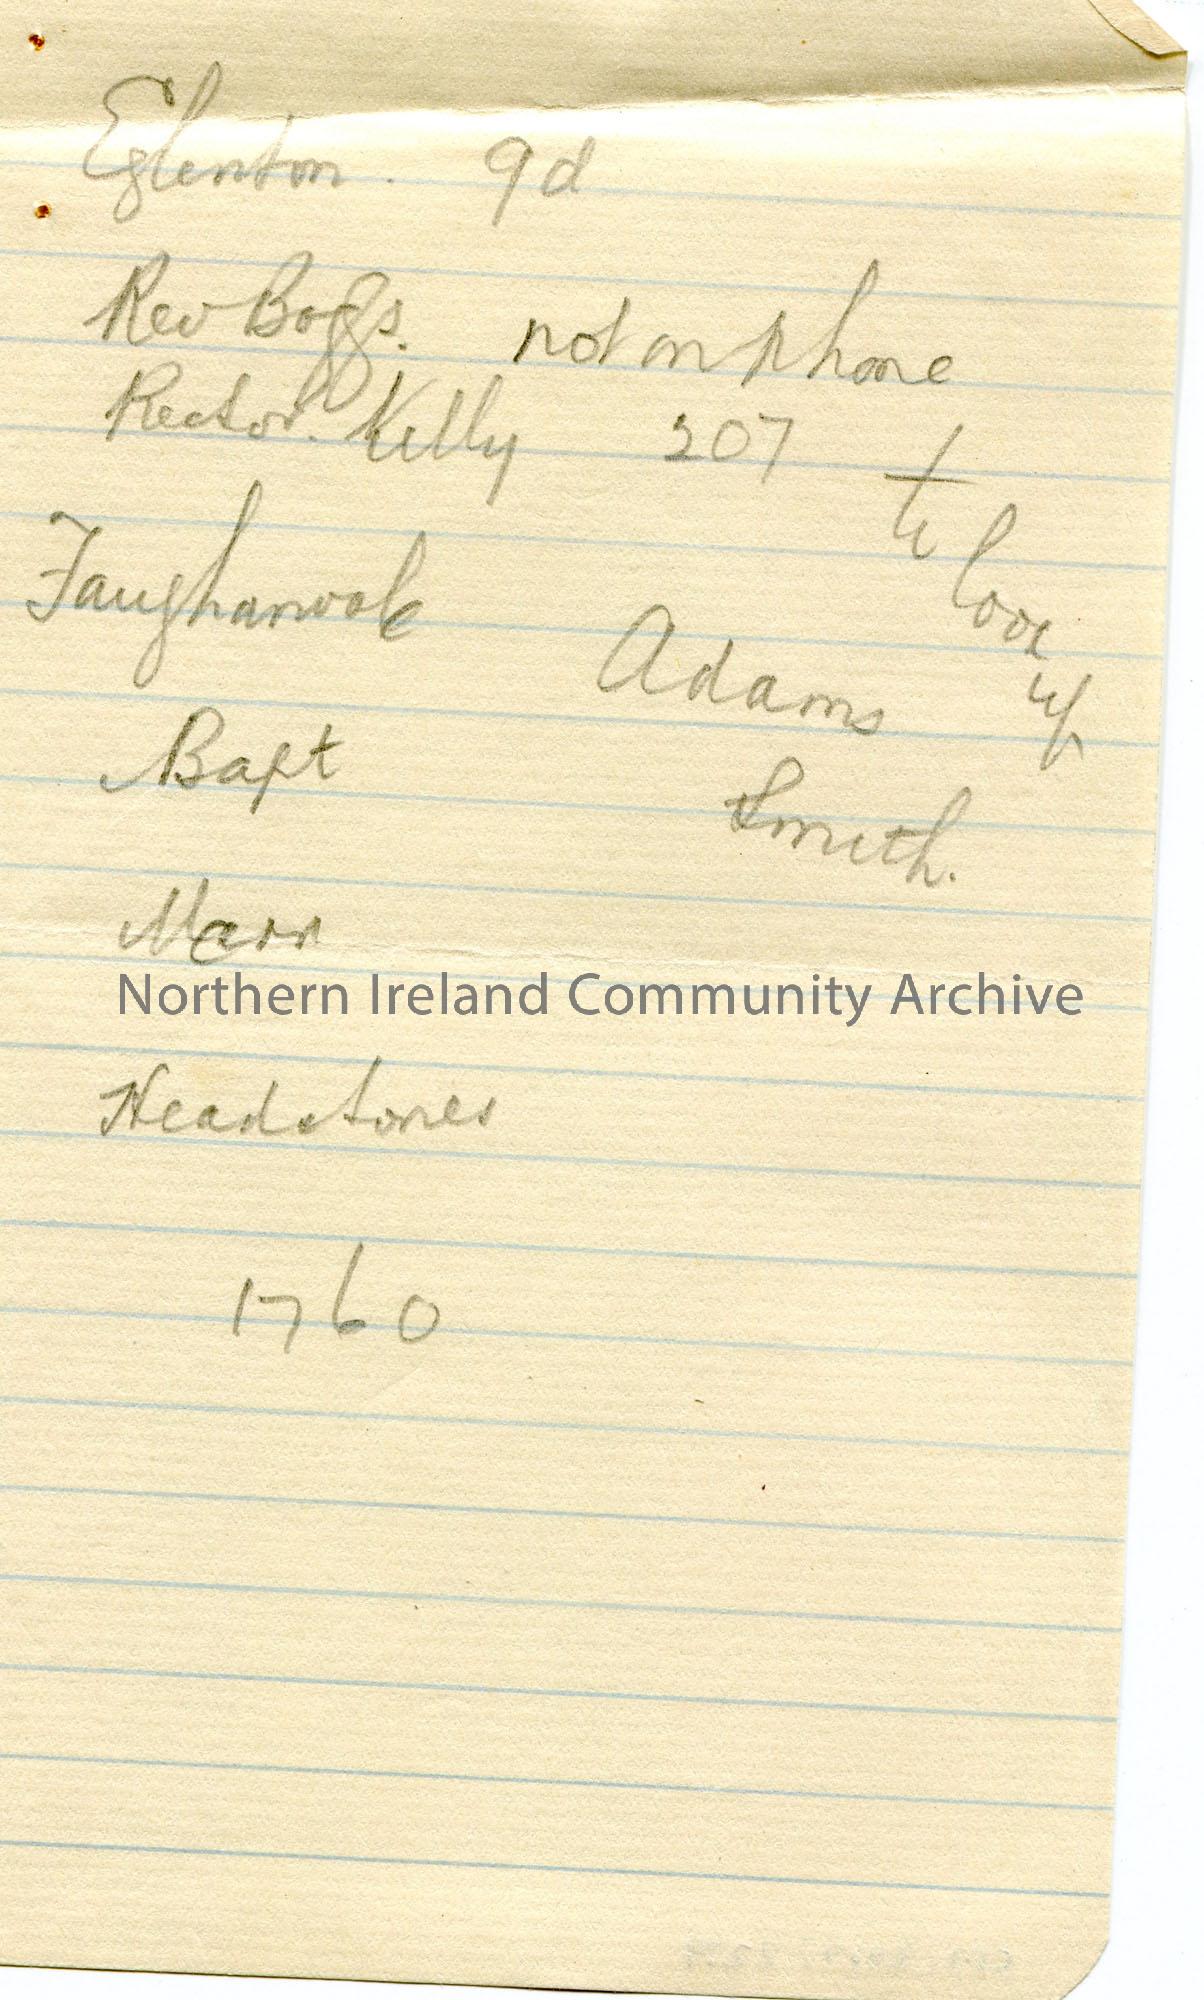 Eglenton. 9d
Rev Boggs. not on phone
Rector. Kelly 207
to look up
Faughanvale
Adams
Bapt
Smith.
Marr
Northern Ireland Community Archive
Headstones
1760